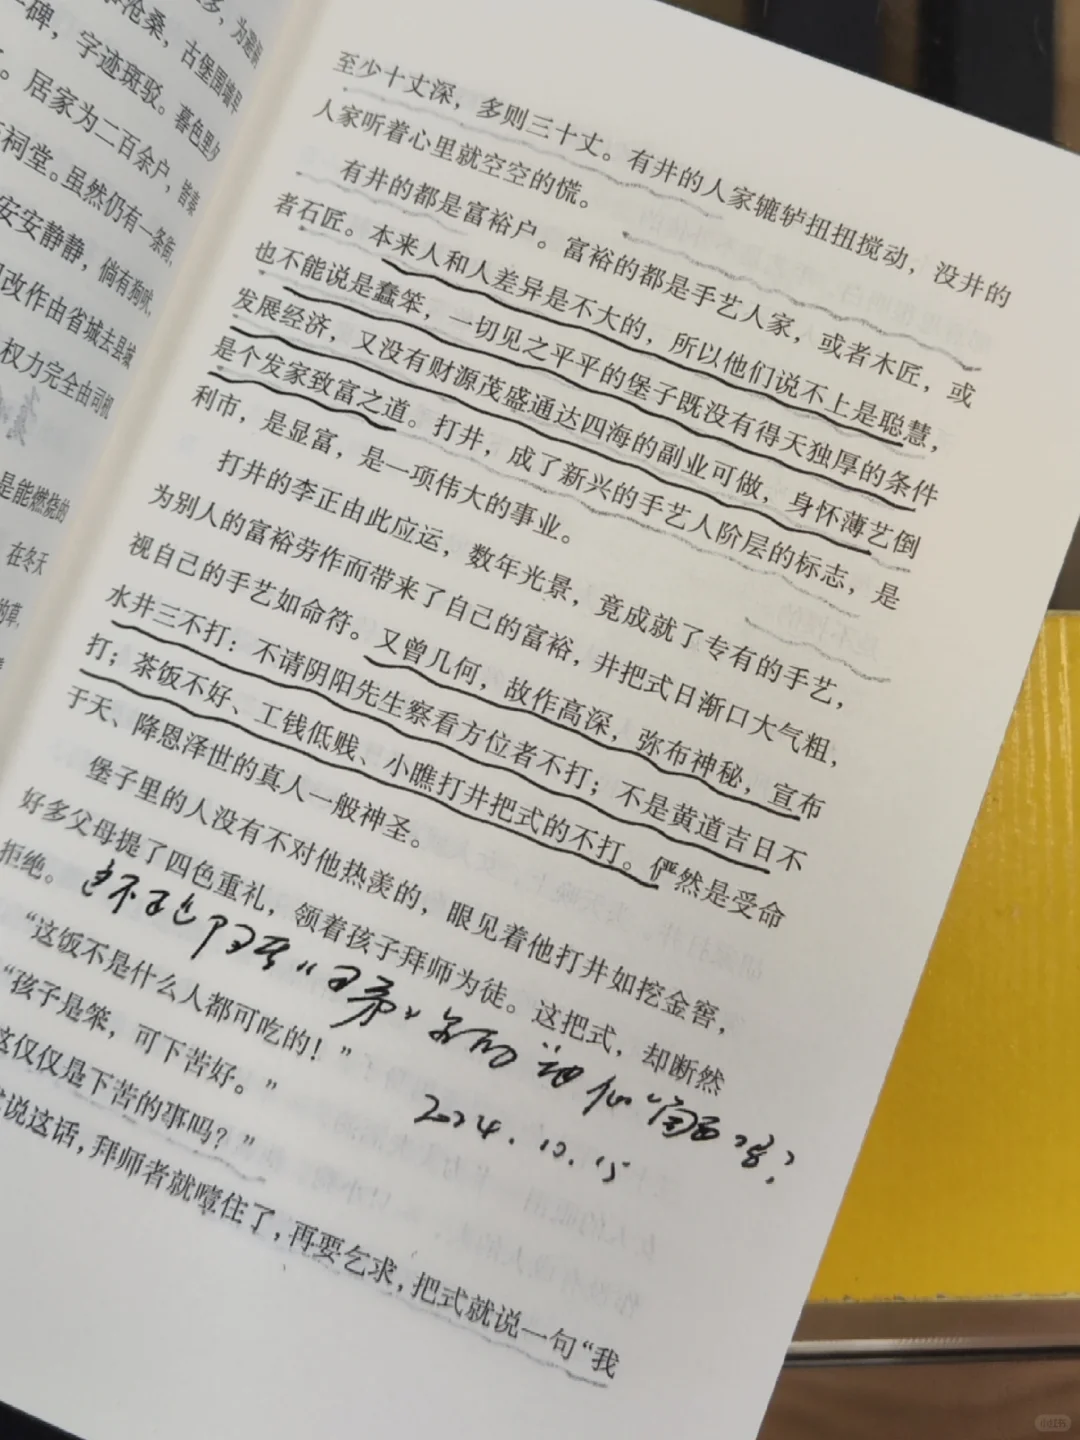 多，为避
沧桑，古堡围墙早
碑，字迹斑驳。暮色里夕
。居家为二百余户，皆
祠堂。虽然仍有一条街，
安安静静，倘有狗吠，
改作由省城去县城
权力完全由司机
是能燃烧的
在冬天
至少十丈深，多则三十丈。有井的人家辘轳扭扭搅动，没井的
人家听着心里就空空的慌。
有井的都是富裕户。富裕的都是手艺人家，或者木匠，或
者石匠。本来人和人差异是不大的，所以他们说不上是聪慧，
也不能说是蠢笨，一切见之平平的堡子既没有得天独厚的条件
发展经济，又没有财源茂盛通达四海的副业可做，身怀薄艺倒
是个发家致富之道。打井，成了新兴的手艺人阶层的标志，是
利市，是显富，是一项伟大的事业。
打井的李正由此应运，数年光景，竟成就了专有的手艺，
为别人的富裕劳作而带来了自己的富裕，井把式日渐口大气粗，
视自己的手艺如命符。又曾几何，故作高深，弥布神秘，宣布
水井三不打：不请阴阳先生察看方位者不打；不是黄道吉日不
打；茶饭不好、工钱低贱、小瞧打井把式的不打。俨然是受命
于天、降恩泽世的真人一般神圣。
堡子里的人没有不对他热羡的，眼见着他打井如挖金窖，
好多父母提了四色重礼，领着孩子拜师为徒。这把式，却断然
拒绝。
“这饭不是什么人都可吃的！”
“孩子是笨，可下苦好。”
这仅仅是下苦的事吗？”
说这话，拜师者就噎住了，再要乞求，把式就说一句“我
2024.10.15